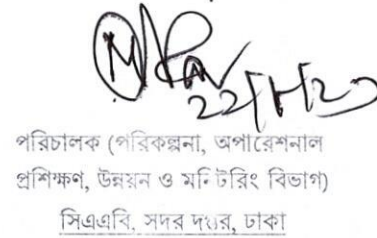 পরিচালক (পরিকল্পনা, অপারেশনাল
প্রশিক্ষণ, উন্নয়ন ও মনিটরিং বিভাগ)
সিএএবি, সদর দপ্তর, ঢাকা